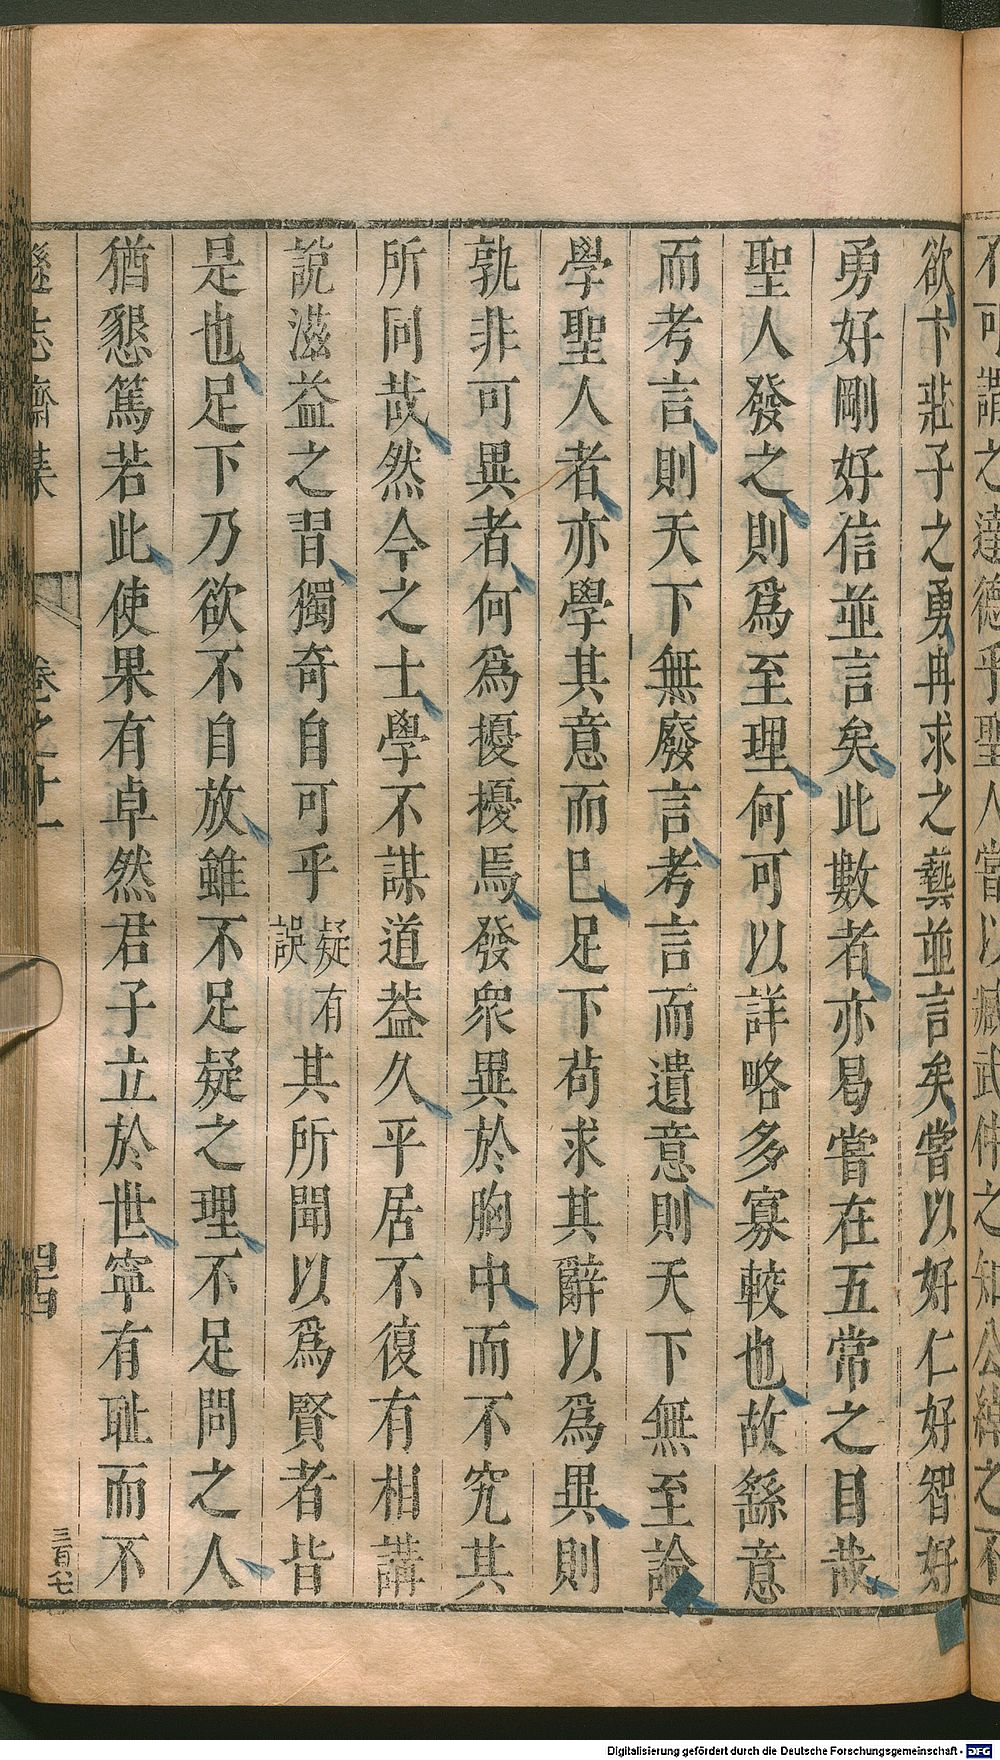 不可謂之達德乎聖人嘗以臧武仲之知公綽之不
欲卞莊子之勇冉求之藝並言矣嘗以好仁好智好
勇好剛好信並言矣此數者亦曷嘗在五常之目哉
聖人發之則爲至理何可以詳略多寡較也故繇意
而考言則天下無廢言考言而遺意則天下無至論
學聖人者亦學其意而已足下茍求其辭以爲異則
孰非可異者何爲擾擾焉發衆異於胸中而不究其
所同哉然今之士學不謀道葢久平居不復有相講
說滋益之習獨奇自可乎疑有誤其所聞以爲賢者皆
是也足下乃欲不自放雖不足疑之理不足問之人
猶懇篤若此使果有卓然君子立於世寧有耻而不
遜志齋集 卷之十一 四十四 三百七
Digitalisierung gefördert durch die Deutsche Forschungsgemeinschaft - DFG